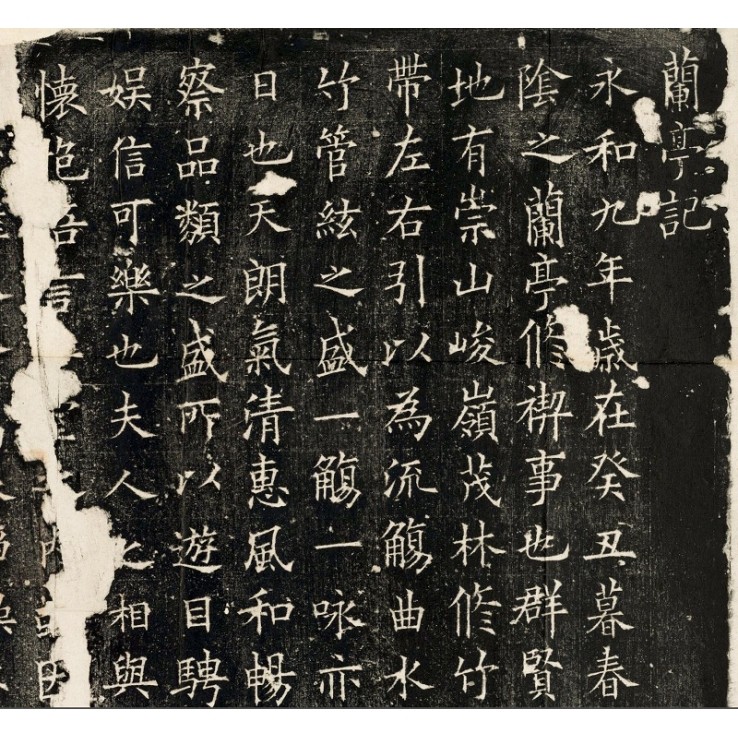 蘭亭記
永和九年歲在癸丑暮春
陰之蘭亭修禊事也群賢
地有崇山峻嶺茂林修竹
帶左右引以為流觴曲水
竹管絃之盛一觴一咏亦
日也天朗氣清惠風和暢
察品類之盛所以遊目騁
娛信可樂也夫人之相與
懷抱悟言室內或因